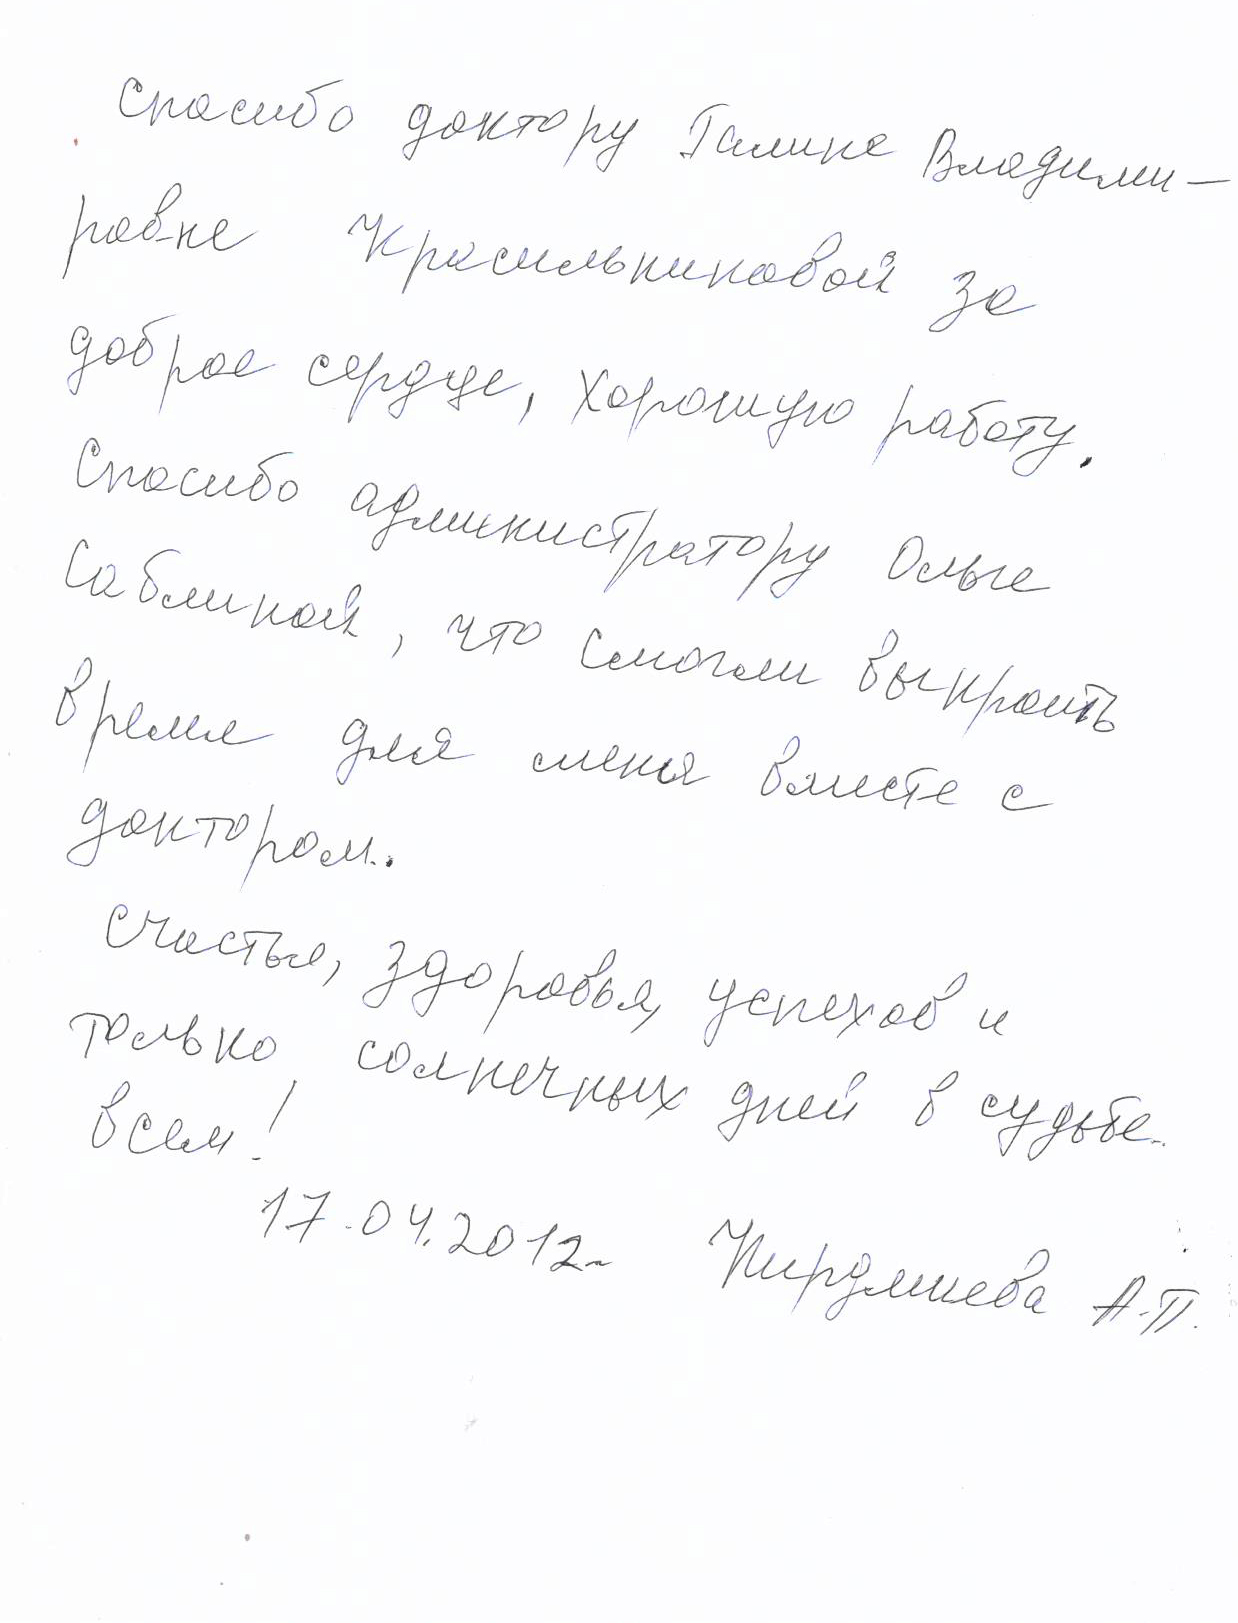 Спасибо доктору Галине Владими-
ровне Красильниковой за
доброе сердце, хорошую работу.
Спасибо администратору Ольге
Саблиной, что смогли выкроить
время для меня вместе с
доктором.
Счастья, здоровья, успехов и
только солнечных дней в судьбе
всем!
17.04.2012г А.П.